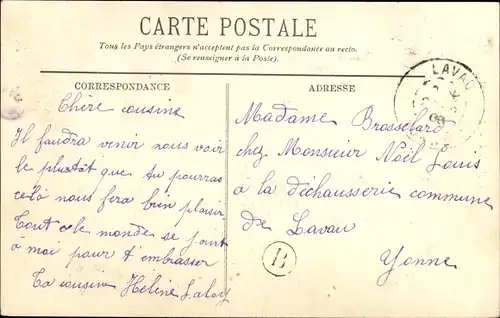 CARTE POSTALE
Tous les Pays étrangers n'acceptent pas la Correspondance au recto.
(Se renseigner à la Poste).
CORRESPONDANCE
Chère cousine
Il faudra venir nous voir
le plustôt que tu pourras
celà nous fera bien plaisir
Tout le monde se joint
à moi pour t'embrasser
Ta cousine Hélène
ADRESSE
LAVAU
Madame Brosselard
chez Monsieur Noël Louis
a la déchausserie commune
de Lavau
Yonne
B